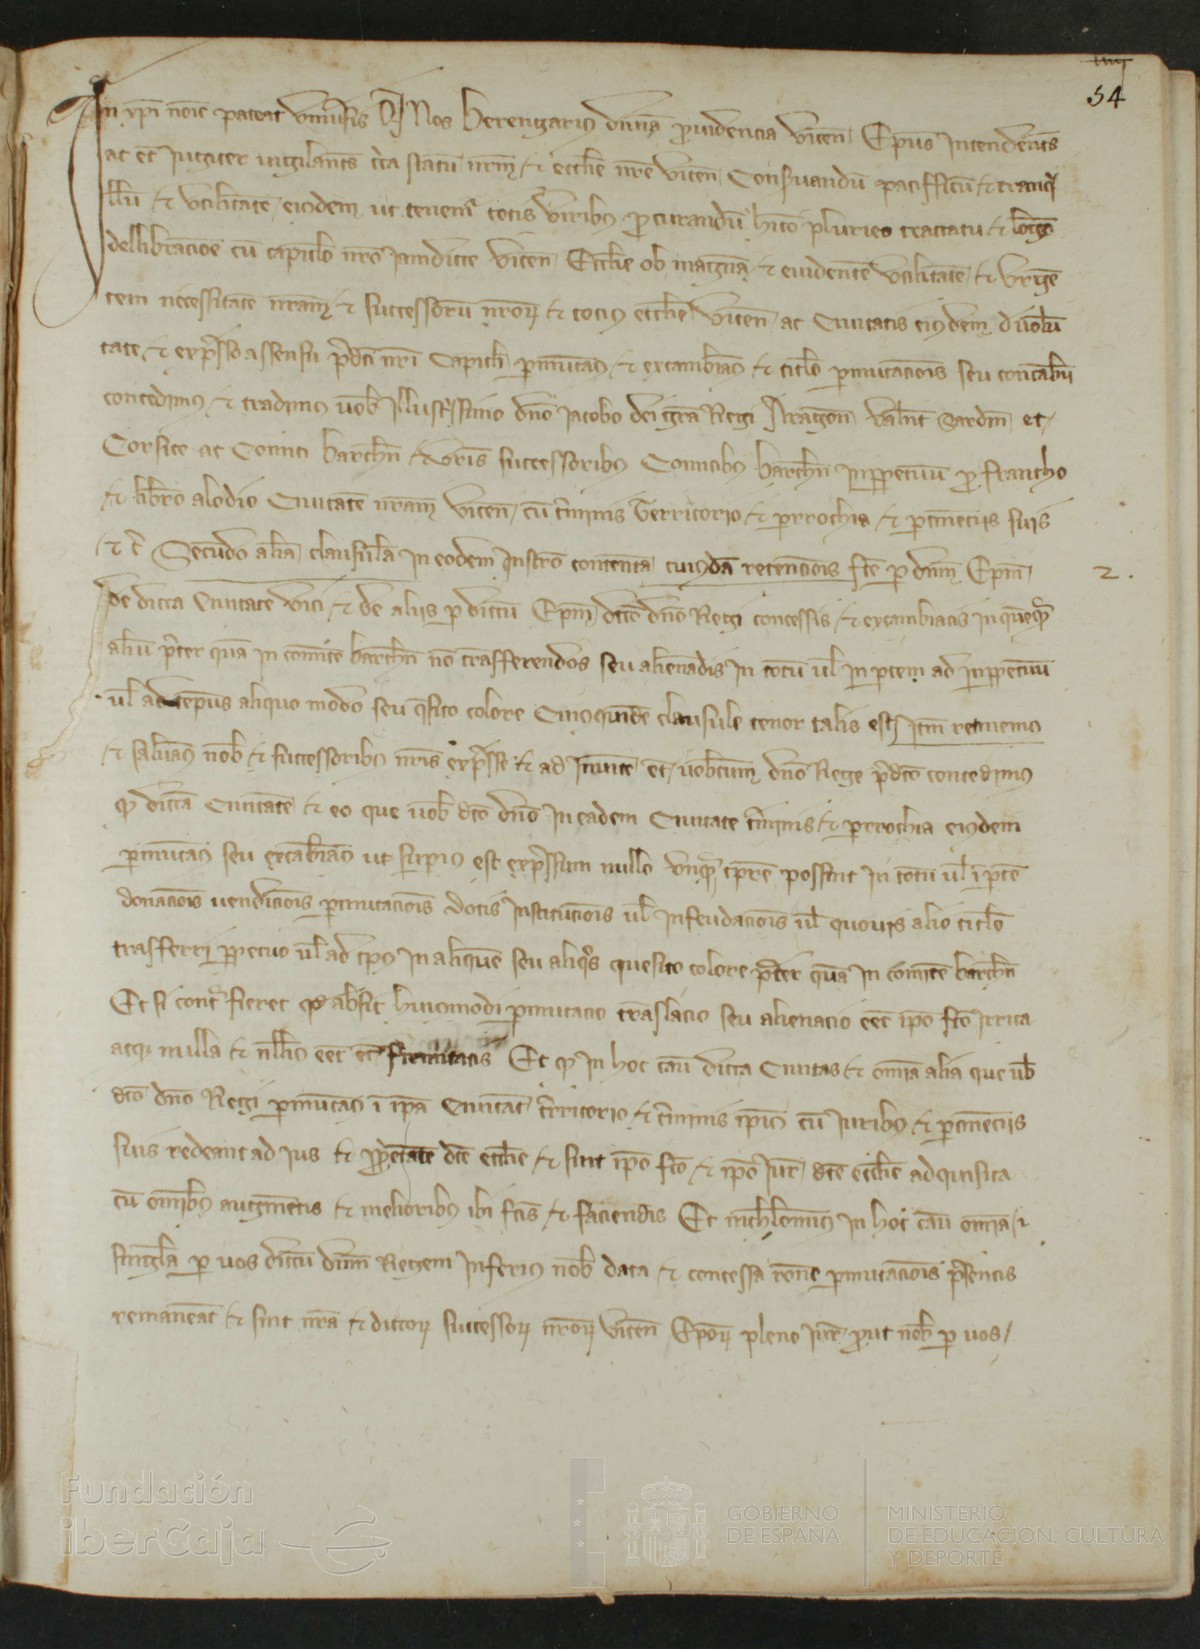 54
In xpi noie pateat univsis Qd Nos Berengarius divina providencia vicen Epus Intendentes
ac et Jugiter vigilantes circa statum nrm et ecclie nre vicen Conservandum pacifficum et tranqi
llum et utilitatem eiusdem ut tenemr totis viribus procurandum hito pluries tractatu et longo
dellibracione cum capitulo nro Jamdicte vicen Ecclie ob magnam et evidentem utilitatem et Urgen
tem necessitatem nram et successorum nrorum et tocius ecclie vicen ac Civitatis eiusdem de volun
tate et expresso assensu pdci nri Capituli permutamus et excambiamus et titulo permutacionis seu concambii
concedimus et tradimus vob Illustrissimo dno Jacobo dei gra Regi Aragon Valent Sardin et
Corsice ac Comiti barchn et vris successoribus Comitibus barchn Imperpetuum pro francho
et libero alodio Civitatem nram vicen cum terminis Territorio et perrochia et pertinenciis suis
et c Secundo alia clausula in eodem Instro contenta cuiusdam retencionis fce per dnm Epm
2.
de dicta Civitate vici et de aliis per dictum Epm dicto dno Regi concessis et excambiatis in quemquam
alium preter quam in comitem barchn non trasfferendos seu alienandis in totum vel in partem ad imperpetuum
vel ad tempus aliquo modo seu quesito colore Cuiusquidem clausule tenor talis est Item retinemus
et salvamus nob et successoribus nris expresse et ad Invicem et vobiscum dno Rege pdco concedimus
qd dicta Civitatem et eo que vob dco dno in eadem Civitate terminis et perrochia eiusdem
permutamus seu excambiamus ut superius est expressum nullo unquam tempore possint in totum vel in partem
donacionis vendicionis permutacionis dotis Institucionis vel Infeudacionis vel quovis alio titulo
trasferri perpetuo vel ad tempus in aliquem seu aliquos quesito colore preter quam in comitem barchn
Et si contra fieret quod absit huiusmodi permutacio translacio seu alienacio eet ipso fco Irrita
atque nulla et nullius eet et firmitatis Et qd in hoc casu dicta Civitas et omnia alia que vob
dco dno Regi permutamus in ipsa Civitate territorio et terminis ipsius cum Juribus et pertinenciis
suis redeant ad Jus et proprietatem dce ecclie et sint ipso fco et ipso Jure dce ecclie adquisita
cum omnibus augmentis et melioribus ibi fcis et faciendis Et nichilominus in hoc casu omnia et
singula per vos dictum dnm Regem Inferius nob data et concessa racione permutacionis presentis
remaneant et sint nra et dictorum successorum nrorum vicen Eporum pleno Jure prout nob per vos
Fundación
iberCaja
GOBIERNO
DE ESPAÑA
MINISTERIO
DE EDUCACIÓN, CULTURA
Y DEPORTE